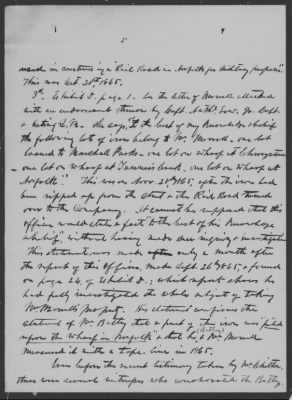 5
used in constructing a Rail Road in Norfolk for Military purposes".
This was Oct. 31st 1865.
3rd. Exhibit D. page 1. In the letter of Morrell Meeked
with an endorsement thereon by Capt.
& acting Q.M. He says, "To the best of my Knowledge & belief
the following lots of iron belong to Mr. Morrell, one lot
loaned to Marshall Parks, one lot on wharf at
one lot on wharf at Tanner's Creek, one lot on wharf at
Norfolk." This was Nov. 25th 1865, after the iron had
been ripped up from the Street & the Rail Road turned
over to the Company. It cannot be supposed that this
officer would state a fact to the best of his Knowledge
& belief, without having made some inquiry & investigation
This statement was made only a month after
the report of this Officer, made Sept. 26th 1865, & found
on page 24, of Exhibit D.; which report shows he
had fully investigated the whole subject of taking
Mr. Morrell's property. His statement confirms the
statement of Mr. Bettly that a part of the iron was "piled
upon the Wharf in Norfolk" & that he (Bettly) & Mr. Morrell
measured it with a tape line in 1865.
Even before the recent testimony taken by Mr.
there were several witnesses who corroborated the Bettly